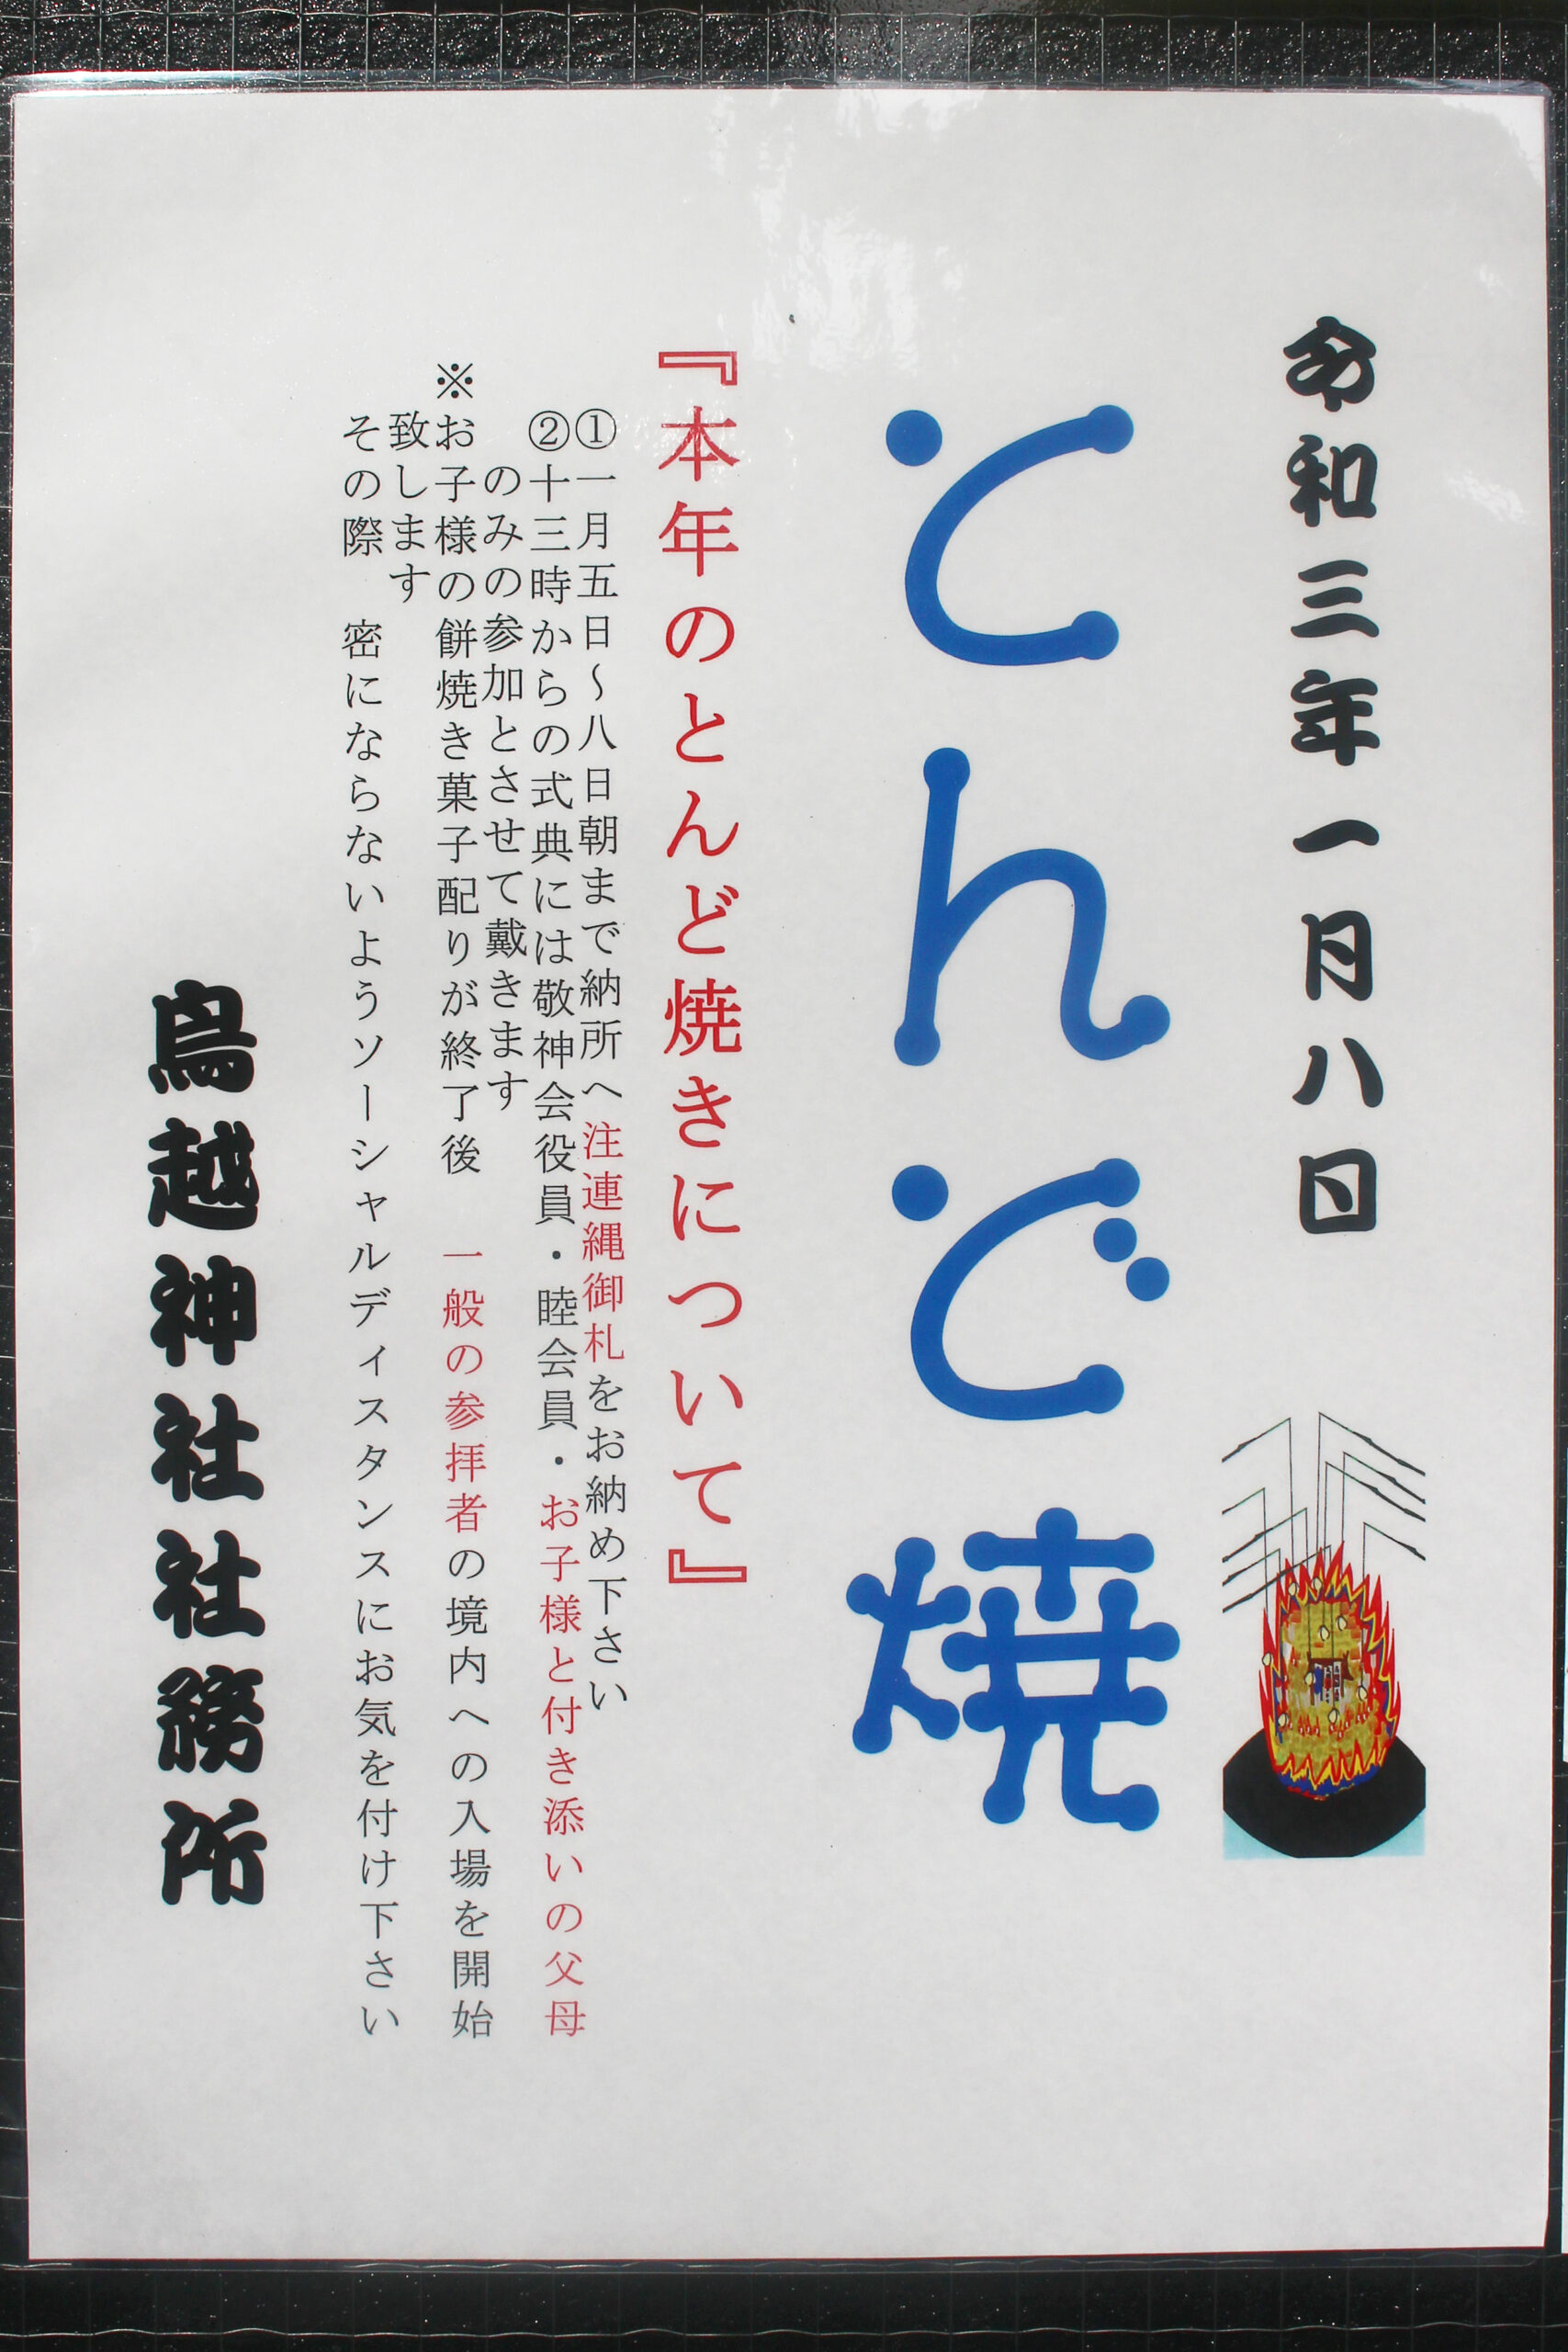 令和三年一月八日
とんど焼
『本年のとんど焼きについて』
①一月五日～八日朝まで納所へ注連縄御札をお納め下さい
②十三時からの式典には敬神会役員・睦会員・お子様と付き添いの父母
のみの参加とさせて戴きます
※お子様の餅焼き菓子配りが終了後　一般の参拝者の境内への入場を開始
致します
その際　密にならないようソーシャルディスタンスにお気を付け下さい
鳥越神社社務所